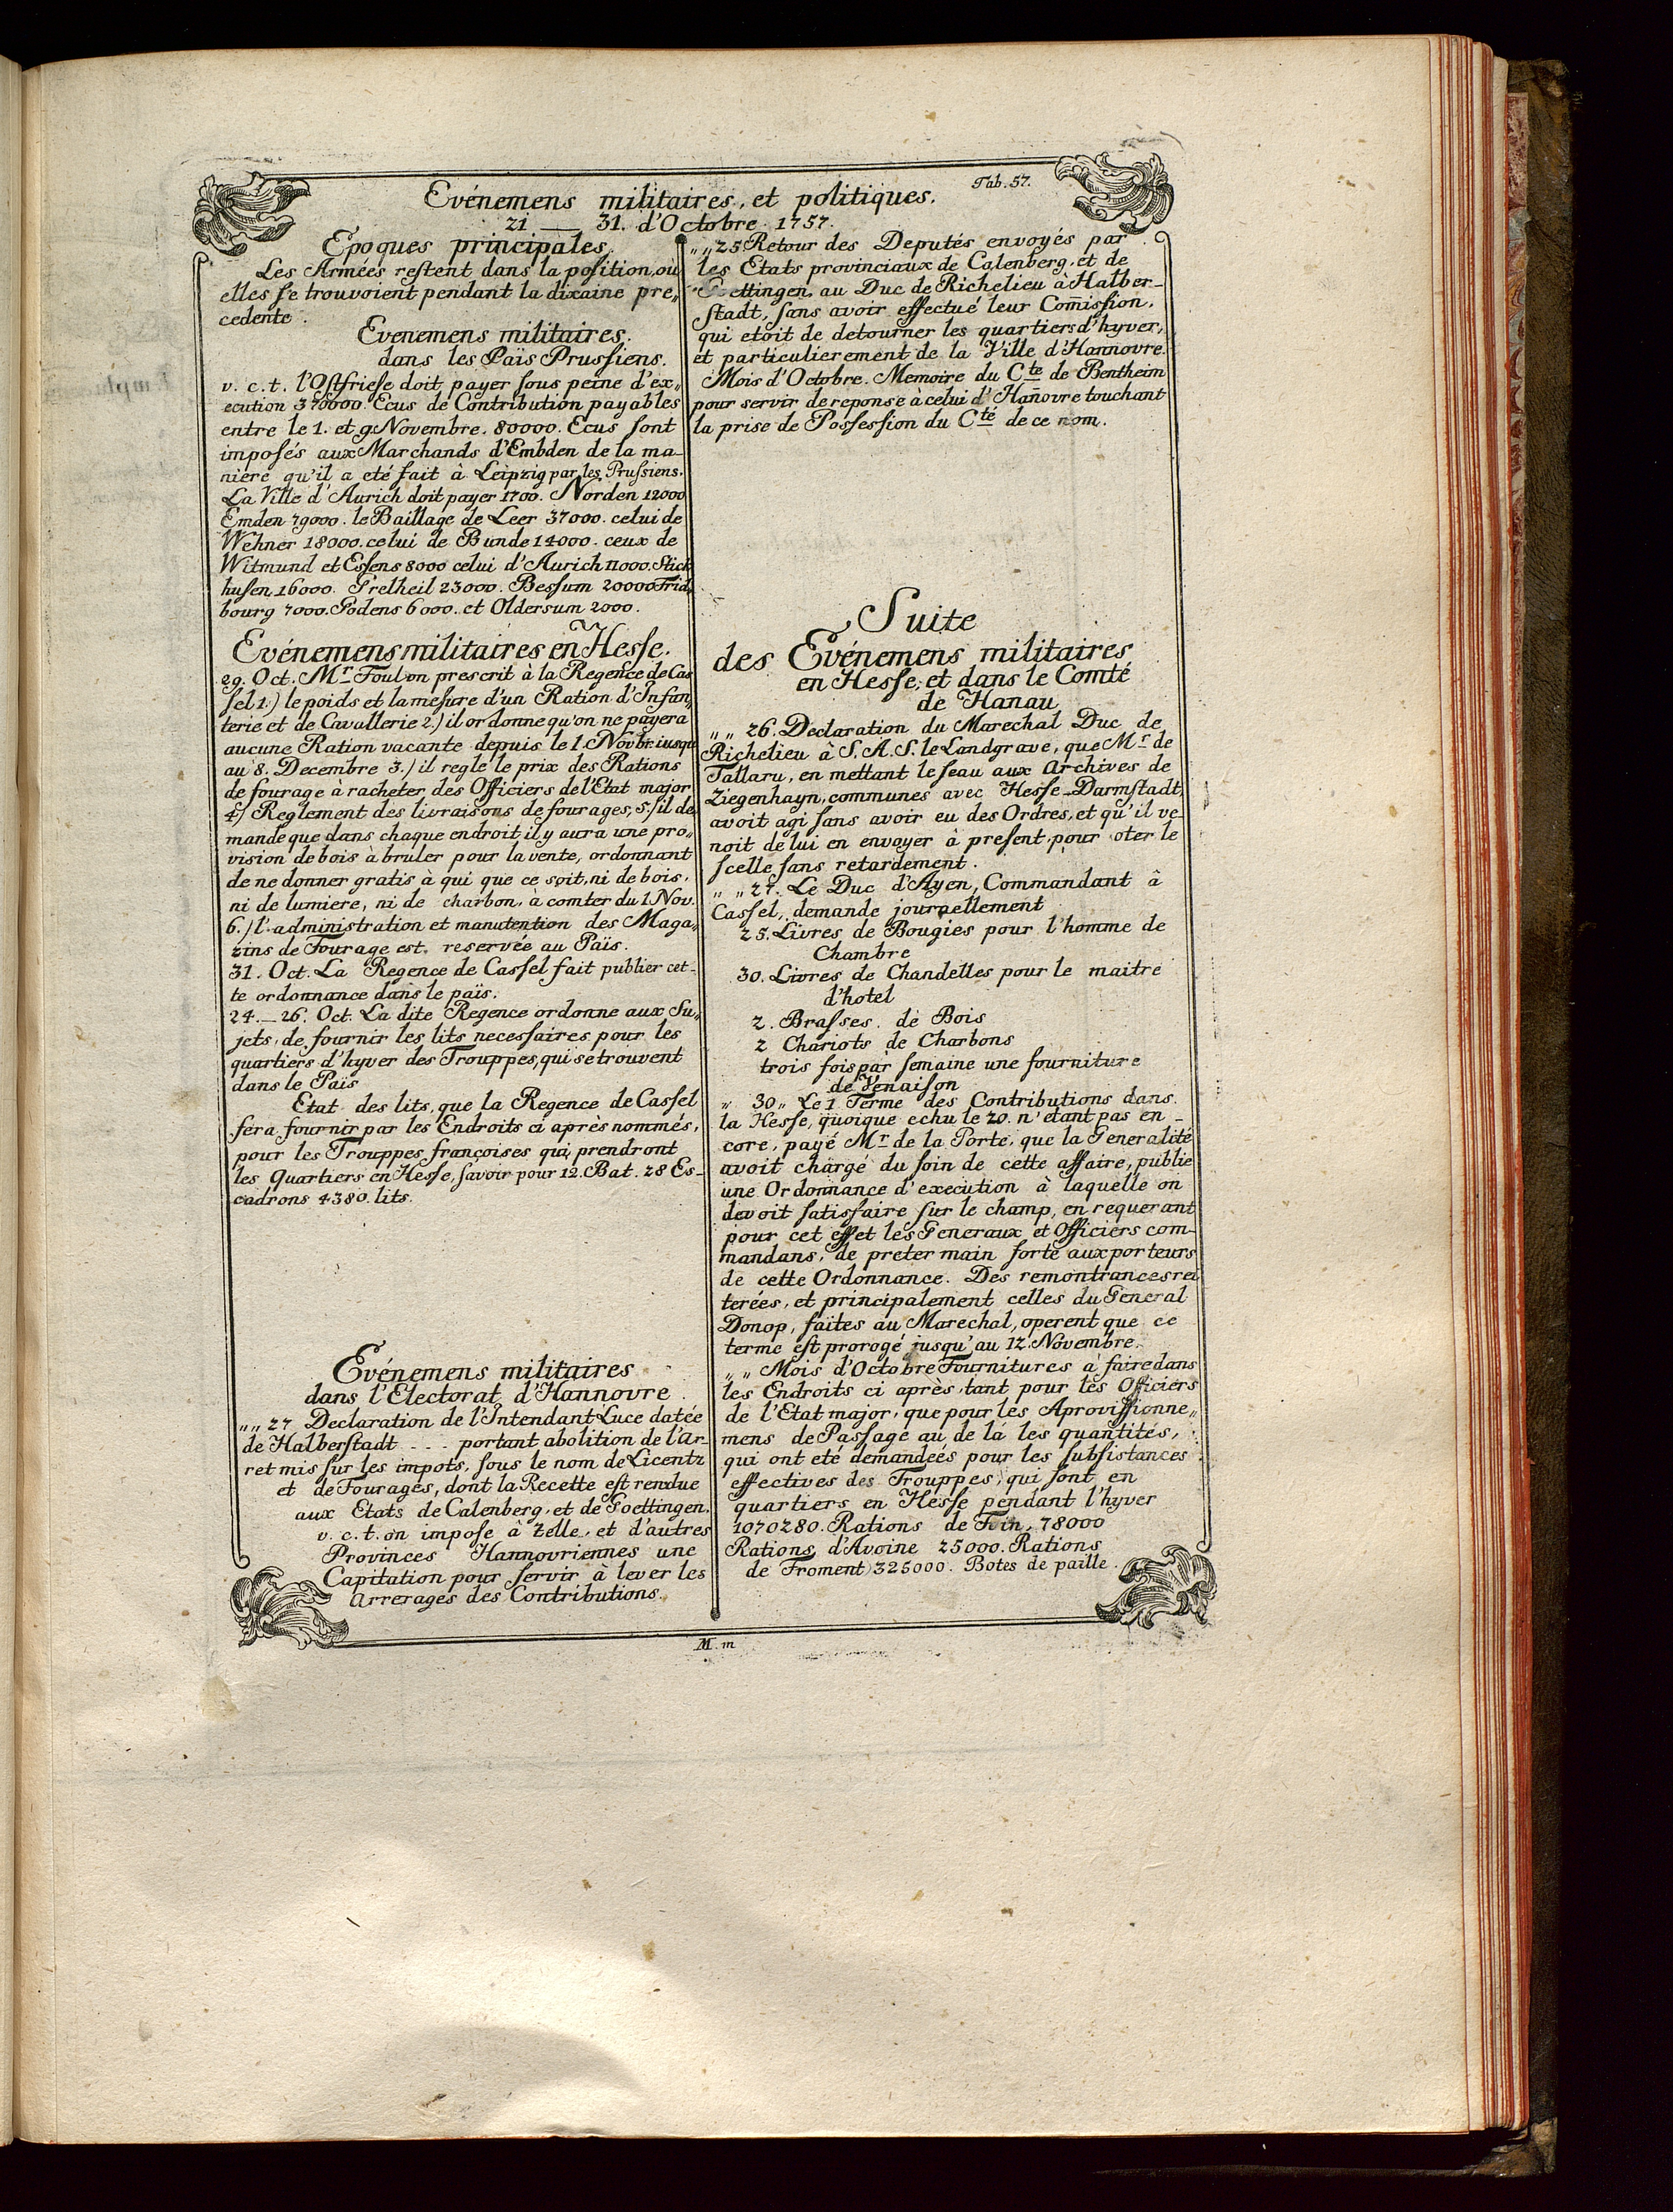 Tab. 57.
Evénemens militaires, et politiques.
21 — 31. d'Octobre 1757.
Epoques principales.
Les Armées restent dans la position, où
elles se trouvoient pendant la dixaine pre„
cedente.
Evenemens militaires.
dans les Païs Prussiens.
v. c. t. l'Ostfriese doit payer sous peine d'ex„
ecution 370000. Ecus de Contribution payables
entre le 1. et 9. Novembre. 80000. Ecus sont
imposés aux Marchands d'Embden de la ma-
niere qu'il a eté fait à Leipzig par les Prussiens.
La Ville d'Aurich doit payer 1700. Norden 12000
Emden 79000. le Baillage de Leer 37000. celui de
Wehner 18000. celui de Bunde 14000. ceux de
Witmund et Essens 8000 celui d'Aurich 11000. Stick
husen 16000. Grelheil 23000. Bessum 20000 Frid„
bourg 7000. Godens 6000. et Oldersum 2000.
Evénemens militaires en Hesse.
29. Oct. Mr. Foulon prescrit à la Regence de Cas
sel 1.) le poids et la mesure d'un Ration d'Infan„
terie et de Cavallerie 2.) il ordonne qu'on ne payera
aucune Ration vacante depuis le 1. Novbr. iusqu
au 8. Decembre 3.) il regle le prix des Rations
de fourage à racheter des Officiers de l'Etat major
4.) Reglement des livraisons de fourages, 5.) il de
mande que dans chaque endroit il y aura une pro„
vision de bois à bruler pour la vente, ordonnant
de ne donner gratis à qui que ce soit, ni de bois,
ni de lumiere, ni de charbon, à comter du 1 Nov.
6.) l'administration et manutention des Maga„
zins de Fourage est reservée au Païs.
31. Oct. La Regence de Cassel fait publier cet-
te ordonnance dans le païs.
24. — 26. Oct. La dite Regence ordonne aux Su„
jets, de fournir les lits necessaires pour les
quartiers d'hyver des Trouppes, qui se trouvent
dans le Païs
Etat des lits, que la Regence de Cassel
fera fournir par les Endroits ci après nommés,
pour les Trouppes françoises qui prendront
les Quartiers en Hesse, savoir pour 12. Bat. 28 Es-
cadrons 4380. lits.
Evénemens militaires
dans l'Electorat d'Hannovre.
„ „ 27 Declaration de l'Intendant Luce datée
de Halberstadt - - - portant abolition de l'ar-
ret mis sur les impots, sous le nom de Licentz
et de Fourages, dont la Recette est rendue
aux Etats de Calenberg, et de Goettingen.
v. c. t. on impose à Zelle, et d'autres
Provinces Hannovriennes une
Capitation pour servir à lever les
Arrerages des Contributions.
„ „ 25 Retour des Deputés envoyés par
les Etats provinciaux de Calenberg, et de
Goettingen, au Duc de Richelieu à Halber-
stadt, sans avoir effectué leur Com̄ission,
qui etoit de detourner les quartiers d'hyver,
et particulierement de la Ville d'Hannovre.
Mois d'Octobre. Memoire du Cte de Bentheim
pour servir de reponse à celui d'Han̄ovre touchant
la prise de Possession du Cté de ce nom.
Suite
des Evénemens militaires
en Hesse, et dans le Comté
de Hanau
„ „ 26. Declaration du Marechal Duc de
Richelieu à S. A. S. le Landgrave, que Mr. de
Tallaru, en mettant le seau aux Archives de
Ziegenhayn, communes avec Hesse-Darmstadt,
avoit agi sans avoir eu des Ordres, et qu'il ve-
noit de lui en envoyer à present, pour oter le
scelle sans retardement.
„ „ 27. Le Duc d'Ayen, Commandant à
Cassel, demande journellement
25. Livres de Bougies pour l'homme de
Chambre
30. Livres de Chandelles pour le maitre
d'hotel
2. Brasses. de Bois
2 Chariots de Charbons
trois fois par semaine une fourniture
de Venaison
„ 30 „ Le 1 Terme des Contributions dans
la Hesse, quoique echu le 20. n'etant pas en-
core, payé Mr. de la Porte, que la Generalité
avoit chargé du soin de cette affaire, publie
une Ordonnance d'execution à laquelle on
devoit satisfaire sur le champ, en requerant
pour cet effet les Generaux et Officiers com-
mandans, de preter main forte aux porteurs
de cette Ordonnance. Des remontrances rei
terées, et principalement celles du General
Donop, faites au Marechal, operent que ce
terme est prorogé jusqu'au 12. Novembre.
„ „ Mois d'Octobre Fournitures à faire dans
les Endroits ci après, tant pour les Officiers
de l'Etat major, que pour les Aprovissionne„
mens de Passage au de là les quantités,
qui ont eté demandeés pour les subsistances
effectives des Trouppes, qui sont en
quartiers en Hesse pendant l'hyver
1070280. Rations de Foin, 78000
Rations d'Avoine 25000. Rations
de Froment 325000. Botes de paille.
M. m